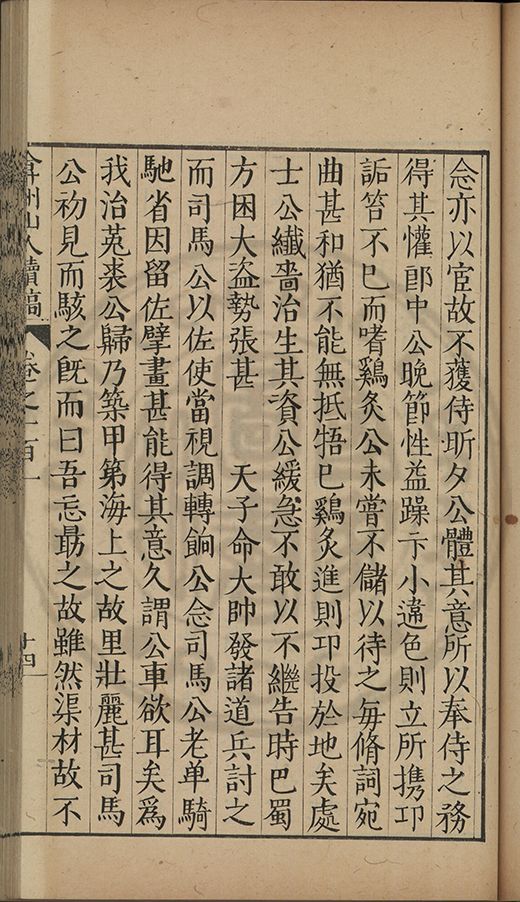 念亦以宦故不獲侍昕夕公體其意所以奉侍之務
得其懽郎中公晚節性益躁卞小違色則立所携卭
詬笞不巳而嗜鷄炙公未嘗不儲以待之每脩詞宛
曲甚和猶不能無抵牾巳鷄炙進則卭投於地矣處
士公纎嗇治生其資公緩急不敢以不繼告時巴蜀
方困大盜勢張甚　天子命大帥發諸道兵討之
而司馬公以佐使當視調轉餉公念司馬公老单騎
馳省因留佐擘畫甚能得其意久謂公車欲耳矣爲
我治菟裘公歸乃築甲第海上之故里壯麗甚司馬
公初見而駭之旣而曰吾忘勗之故雖然渠材故不
弇州山人續稿 卷之一百一 十四